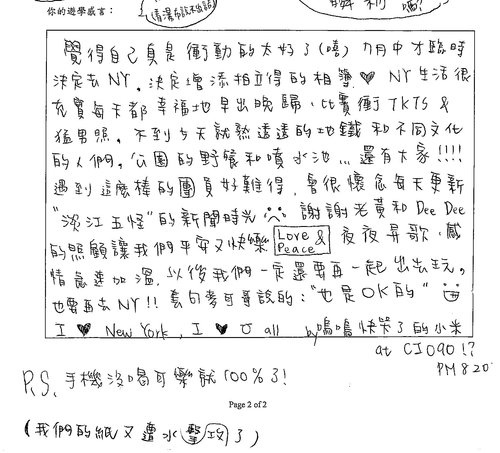 你的遊學感言：
(清湯
瞬利 嗎?
覺得自己真是衝動的太好了(嘻) 7月中才臨時
決定去NY，決定增添相立得的相簿♥ NY生活很
充實每天都幸福地早出晚歸，比賽衝TKTS &
猛男照，不到5天就熟透透的地鐵和不同文化
的人們，公園的野餐和噴水池...還有大家!!!!
遇到這麼棒的團員好難得，會很懷念每天更新
"淡江五怪"的新聞時光 謝謝老黃和Dee Dee
的照顧讓我們平安又快樂 Love & Peace 夜夜昇歌，感
情急速加溫，以後我們一定還要再一起出去玩。
也要再去NY!! 套句麥可哥說的："也是OK的"
I ♥ New York , I ♥ U all by嗚嗚快哭了的小米
at CJ090!?
PM 8 20
P.S. 手機沒喝可樂就100%了!
Page 2 of 2
(我們的紙又遭水擊攻了)